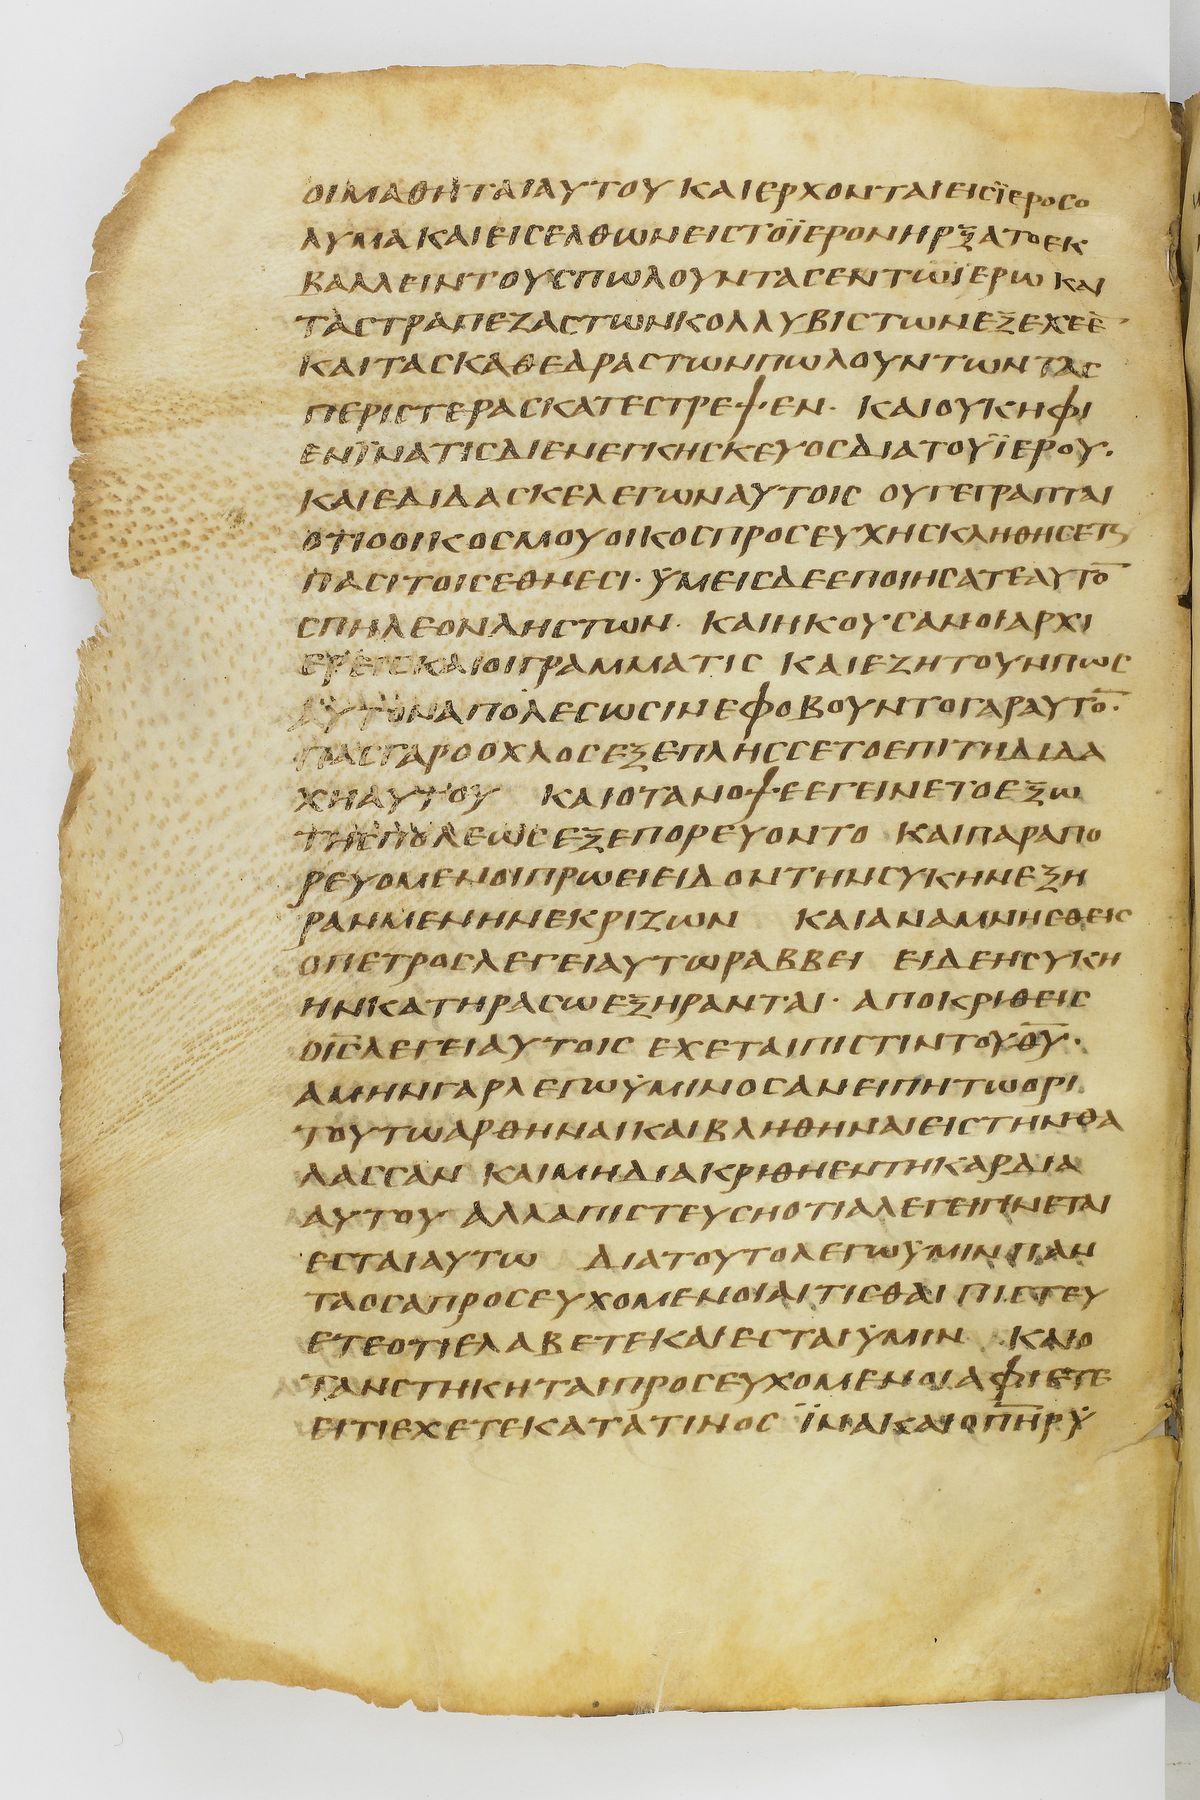 ΟΙΜΑΘΗΤΑΙΑΥΤΟΥ ΚΑΙΕΡΧΟΝΤΑΙΕΙΣΪΕΡΟΣΟ
ΛΥΜΑΚΑΙΕΙΣΕΛΘΩΝΕΙΣΤΟΪΕΡΟΝΗΡΞΑΤΟΕΚ
ΒΑΛΛΕΙΝΤΟΥΣΠΩΛΟΥΝΤΑΣΕΝΤΩΪΕΡΩ ΚΑΙ
ΤΑΣΤΡΑΠΕΖΑΣΤΩΝΚΟΛΛΥΒΙΣΤΩΝΕΞΕΧΕΕ̅
ΚΑΙΤΑΣΚΑΘΕΔΡΑΣΤΩΝΠΩΛΟΥΝΤΩΝΤΑΣ
ΠΕΡΙΣΤΕΡΑΣΚΑΤΕΣΤΡΕΨΕΝ· ΚΑΙΟΥΚΗΦΙ
ΕΝΪΝΑΤΙΣΔΙΕΝΕΓΚΗΣΚΕΥΟΣΔΙΑΤΟΥΪΕΡΟΥ·
ΚΑΙΕΔΙΔΑΣΚΕΛΕΓΩΝΑΥΤΟΙΣ ΟΥΓΕΓΡΑΠΤΑΙ
ΟΤΙΟΟΙΚΟΣΜΟΥΟΙΚΟΣΠΡΟΣΕΥΧΗΣΚΛΗΘΗΣΕΤΑΙ
ΠΑΣΙΤΟΙΣΕΘΝΕΣΙ· ΫΜΕΙΣΔΕΕΠΟΙΗΣΑΤΕΑΥΤΟ̅
ΣΠΗΛΕΟΝΛΗΣΤΩΝ· ΚΑΙΗΚΟΥΣΑΝΟΙΑΡΧΙ
ΕΡΕΙΣΚΑΙΟΙΓΡΑΜΜΑΤΙΣ ΚΑΙΕΖΗΤΟΥΝΠΩΣ
ΑΥΤΟΝΑΠΟΛΕΣΩΣΙΝΕΦΟΒΟΥΝΤΟΓΑΡΑΥΤΟ̅·
ΠΑΣΓΑΡΟΟΧΛΟΣΕΞΕΠΛΗΣΣΕΤΟΕΠΙΤΗΔΙΔΑ
ΧΗΑΥΤΟΥ ΚΑΙΟΤΑΝΟΨΕΕΓΕΙΝΕΤΟΕΞΩ
ΤΗΣΠΟΛΕΩΣΕΞΕΠΟΡΕΥΟΝΤΟ ΚΑΙΠΑΡΑΠΟ
ΡΕΥΟΜΕΝΟΙΠΡΩΕΙΕΙΔΟΝΤΗΝΣΥΚΗΝΕΞΗ
ΡΑΝΜΕΝΗΝΕΚΡΙΖΩΝ ΚΑΙΑΝΑΜΝΗΣΘΕΙΣ
ΟΠΕΤΡΟΣΛΕΓΕΙΑΥΤΩΡΑΒΒΕΙ ΕΙΔΕΗΣΥΚΗ
ΗΝΚΑΤΗΡΑΣΩΕΞΗΡΑΝΤΑΙ· ΑΠΟΚΡΙΘΕΙΣ
ΟΙ̅Σ̅ΛΕΓΕΙΑΥΤΟΙΣ ΕΧΕΤΑΙΠΙΣΤΙΝΤΟΥΘ̅Υ̅·
ΑΜΗΝΓΑΡΛΕΓΩΫΜΙΝΟΣΑΝΕΙΠΗΤΩΟΡΙ
ΤΟΥΤΩΑΡΘΗΝΑΙΚΑΙΒΛΗΘΗΝΑΙΕΙΣΤΗΝΘΑ
ΛΑΣΣΑΝ ΚΑΙΜΗΔΙΑΚΡΙΘΗΕΝΤΗΚΑΡΔΙΑ
ΑΥΤΟΥ ΑΛΛΑΠΙΣΤΕΥΣΗΟΤΙΑΛΕΓΕΙΓΙΝΕΤΑΙ
ΕΣΤΑΙΑΥΤΩ ΔΙΑΤΟΥΤΟΛΕΓΩΫΜΙΝΠΑΝ
ΤΑΟΣΑΠΡΟΣΕΥΧΟΜΕΝΟΙΑΙΤΙΣΘΑΙ ΠΙΣΤΕΥ
ΕΤΕΟΤΙΕΛΑΒΕΤΕΚΑΙΕΣΤΑΙΫΜΙΝ ΚΑΙΟ
ΤΑΝΣΤΗΚΗΤΑΙΠΡΟΣΕΥΧΟΜΕΝΟΙΑΦΙΕΤΕ
ΕΙΤΙΕΧΕΤΕΚΑΤΑΤΙΝΟΣ ΪΝΑΚΑΙΟΠ̅Η̅Ρ̅Ϋ